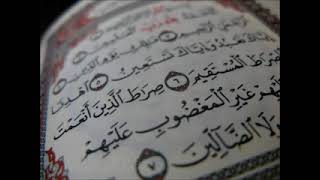 الرَّحِيمِ
إِيَّاكَ نَعْبُدُ وَإِيَّاكَ نَسْتَعِينُ ٥ ٱهْدِنَا
ٱلصِّرَٰطَ ٱلْمُسْتَقِيمَ ٦ صِرَٰطَ ٱلَّذِينَ أَنْعَمْتَ
عَلَيْهِمْ غَيْرِ ٱلْمَغْضُوبِ عَلَيْهِمْ
وَلَا ٱلضَّآلِّينَ ٧